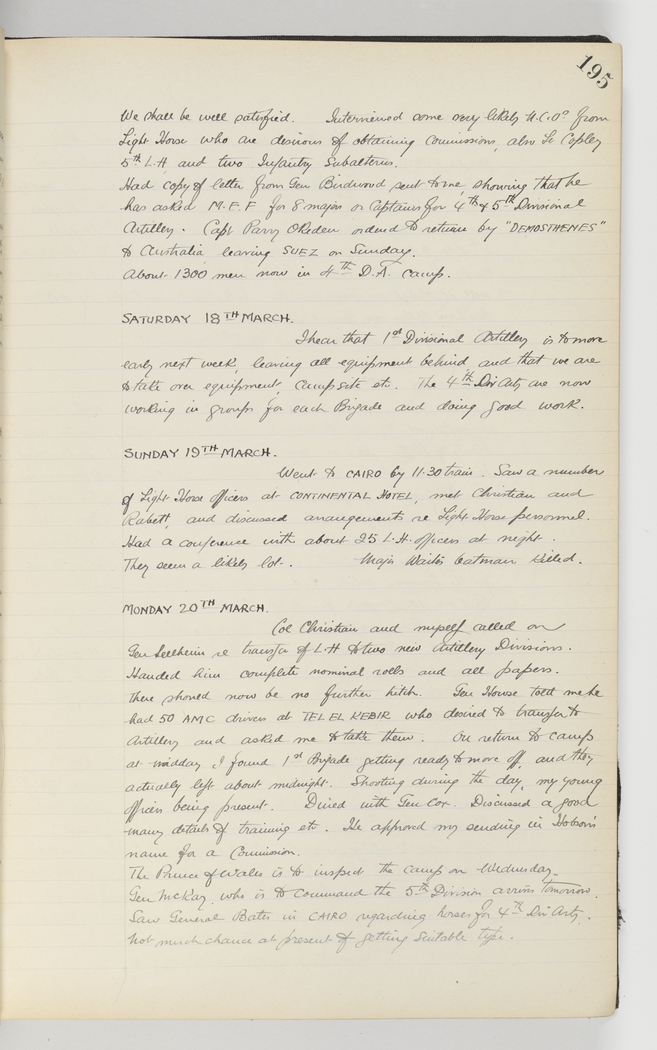 195
We shall be well satisfied. Interviewed some very likely N.C.Os from
Light Horse who are desirous of obtaining commissions, also Lt Copley
5th L.H. and two Infantry Subalterns.
Had copy of letter from Gen Birdwood sent to me, showing that he
has asked M.E.F for 8 majors or Captains for 4th & 5th Divisional
Artillery. Capt Parry Okeden ordered to return by "DEMOSTHENES"
to Australia leaving SUEZ on Sunday.
About 1300 men now in 4th D.A. camp.
SATURDAY 18TH MARCH.
I hear that 1st Divisional Artillery is to move
early next week, leaving all equipment behind, and that we are
to take over equipment, Camp site etc. The 4th Div Arty are now
working in groups for each Brigade and doing good work.
SUNDAY 19TH MARCH.
Went to CAIRO by 11.30 train. Saw a number
of Light Horse officers at CONTINENTAL HOTEL, met Christian and
Rabett, and discussed arrangements re Light Horse personnel.
Had a conference with about 25 L.H. officers at night.
They seem a likely lot. Major Waite's batman killed.
MONDAY 20TH MARCH.
Col Christian and myself called on
Gen Sellheim re transfer of L.H to two new Artillery Divisions.
Handed him complete nominal rolls and all papers.
There should now be no further hitch. Gen House told me he
had 50 AMC drivers at TEL EL KEBIR who desired to transfer to
Artillery and asked me to take them. On return to camp
at midday I found 1st Brigade getting ready to move off, and they
actually left about midnight. Shooting during the day, my young
officers being present. Dined with Gen Cox. Discussed a good
many details of training etc. He approved my sending in Hobson's
name for a Commission.
The Prince of Wales is to inspect the camp on Wednesday.
Gen McKay, who is to command the 5th Division arrives tomorrow.
Saw General Bates in CAIRO regarding horses for 4th Div Arty.
Not much chance at present of getting suitable type.